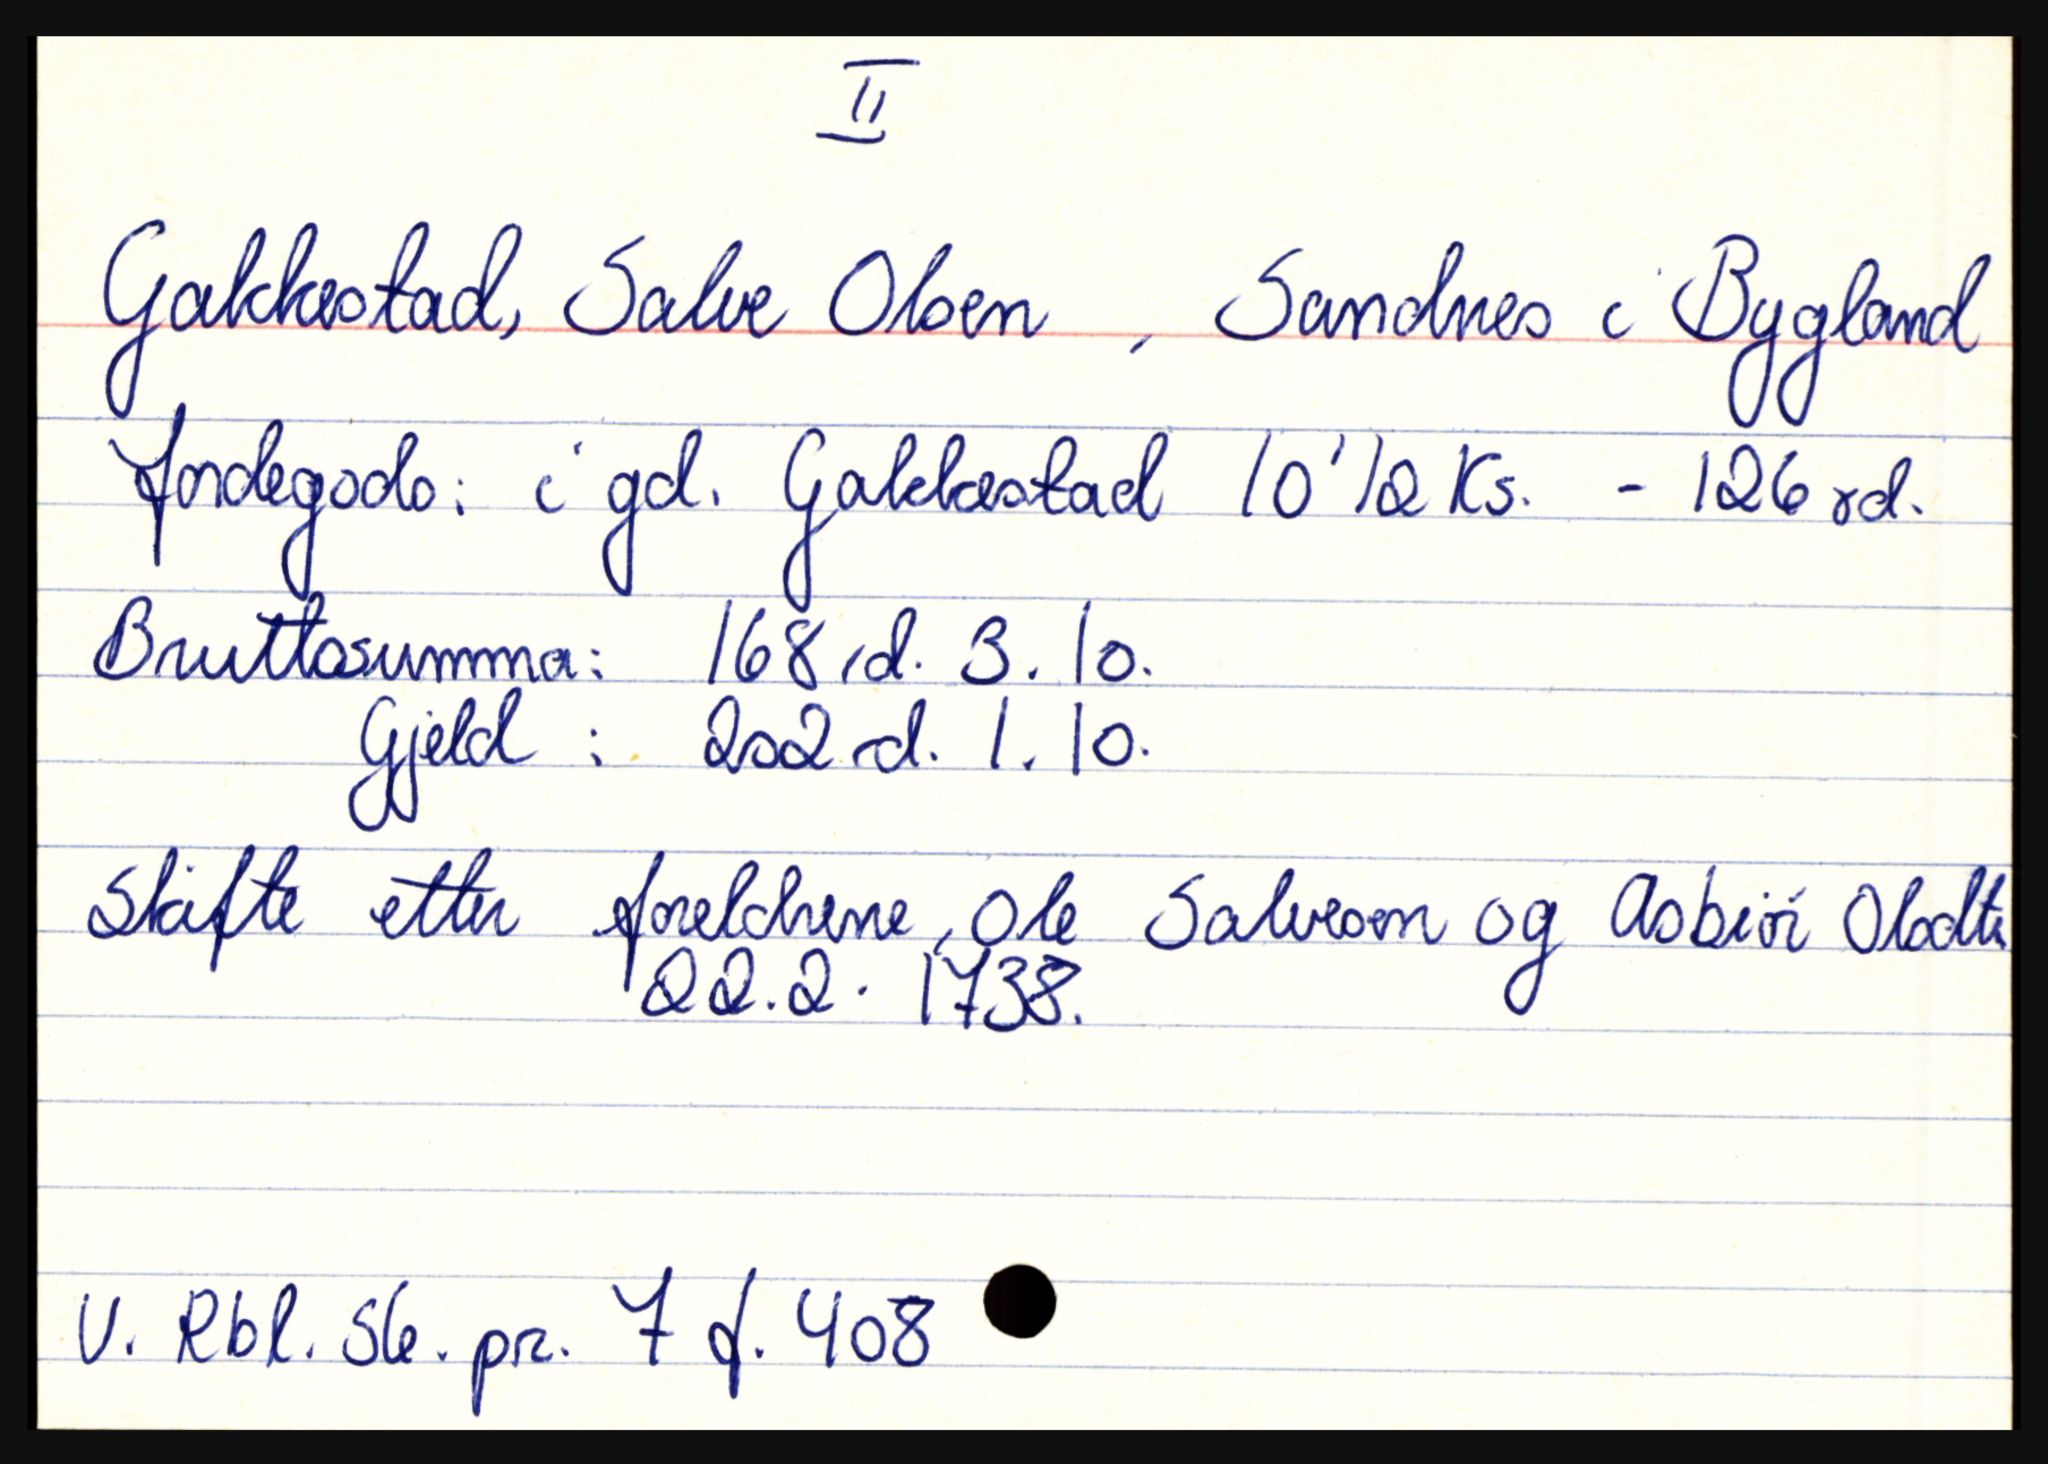 II
Gakkestad, Salve Olsen, Sandnes i Bygland
Jordegods: i gd. Gakkestad 10 1/2 Ks. - 126 rd.
Bruttosumma: 168 rd. 3. 10.
Gjeld : 202 rd. 1. 10.
Skifte etter foreldrene, Ole Salvesen og Asbiör Olsdtr
22.2. 1738.
V. Rbl. Sk. pr. 7 f. 408